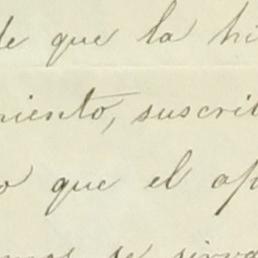 de que la hi
miento, suscrit
o que el ap
mos se sirva